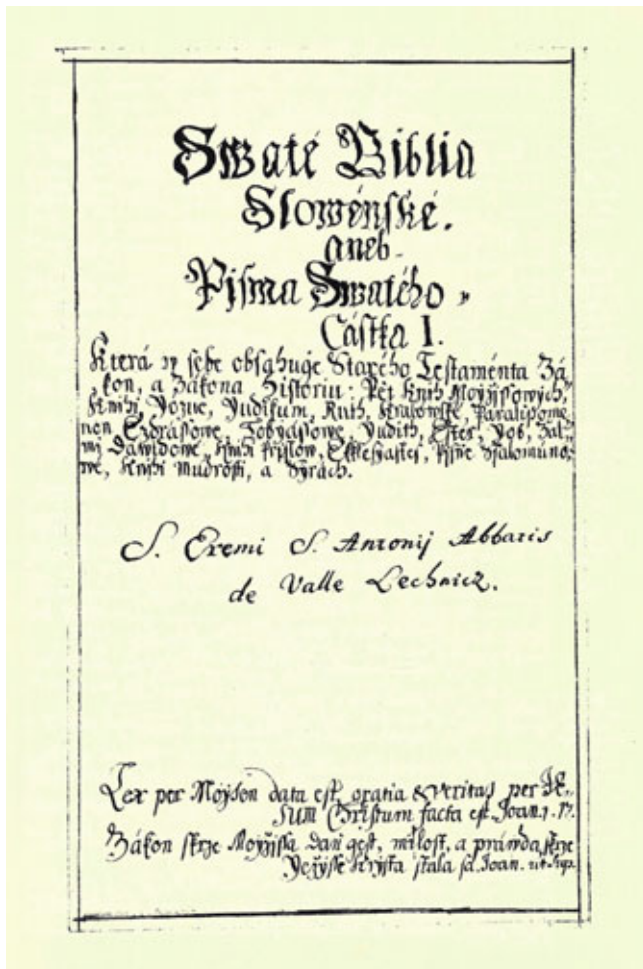 Swaté Biblia
Slowénské.
aneb
Pjsma Swatého
Částka I.
Která w sebe obsahuge Starého Testaménta Zá-
kon, a Zákona Historiu: Pět Knih Moyžissowých,
Knihi, Yozue, Yudikum, Ruth, Kralowské, Paralipome-
non Ezdrassowe, Tobyassowe, Yudith, Ester, Yob, Žal-
mi Dawidowe, Knihi Prislow, Ekklesyastes, Pjsne Ssalomúno-
we, Knihi Mudrosti, a Syrach.
S. Eremi S. Antonij Abbatis
de Valle Lechnicz.
Lex per Moysen data est, gratia & veritas per JE-
SUM Christum facta est. Joan. 1. 17.
Zákon skrze Moyžissa dan gest, milost, a prawda skrze
Yežisse Krysta stala sa. Joan. ut sup.